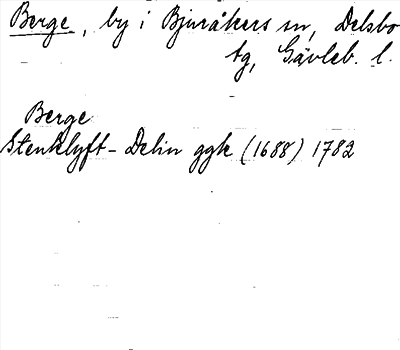 Berge, by i Bjuråkers sn, Delsbo
tg, Gävleb. l.
Berge
Stenklyft - Delin ggk (1688) 1782